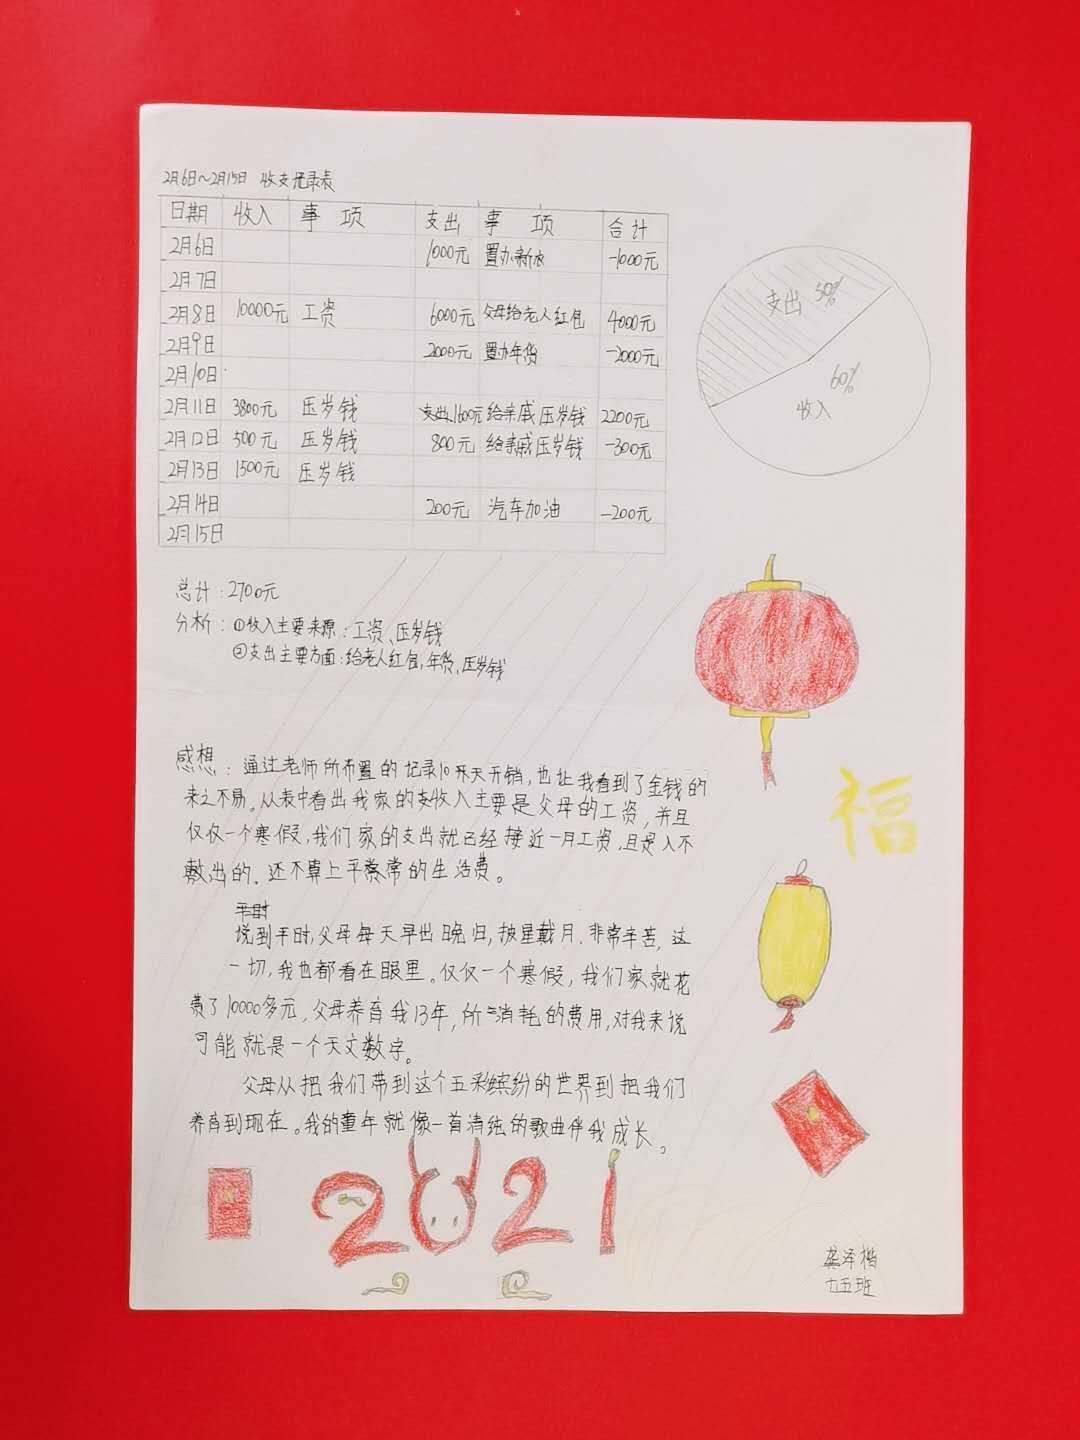 2月6日~2月15日 收支记录表
日期 收入 事项 支出 事项 合计
2月6日 1000元 置办新衣 -1000元
2月7日
2月8日 10000元 工资 6000元 父母给老人红包 4000元
2月9日 2000元 置办年货 -2000元
2月10日
2月11日 3800元 压岁钱 支出1600元 给亲戚压岁钱 2200元
2月12日 500元 压岁钱 800元 给亲戚压岁钱 -300元
2月13日 1500元 压岁钱
2月14日 200元 汽车加油 -200元
2月15日
支出 50%
60%
收入
总计:2700元
分析:①收入主要来源:工资、压岁钱
②支出主要方面:给老人红包,年货、压岁钱
感想:通过老师所布置的记录10天开销,也让我看到了金钱的
来之不易。从表中看出我家的收入主要是父母的工资,并且
仅仅一个寒假,我们家的支出就已经接近一月工资,且是入不
敷出的。还不算上平常的生活费。
平时
说到平时,父母每天早出晚归,披星戴月.非常辛苦,这
一切,我也都看在眼里。仅仅一个寒假,我们家就花
费了10000多元,父母养育我13年,所消耗的费用,对我来说
可能就是一个天文数字。
父母从把我们带到这个五彩缤纷的世界到把我们
养育到现在。我的童年就像一首清纯的歌曲伴我成长。
福
2021
龚泽楷
七五班